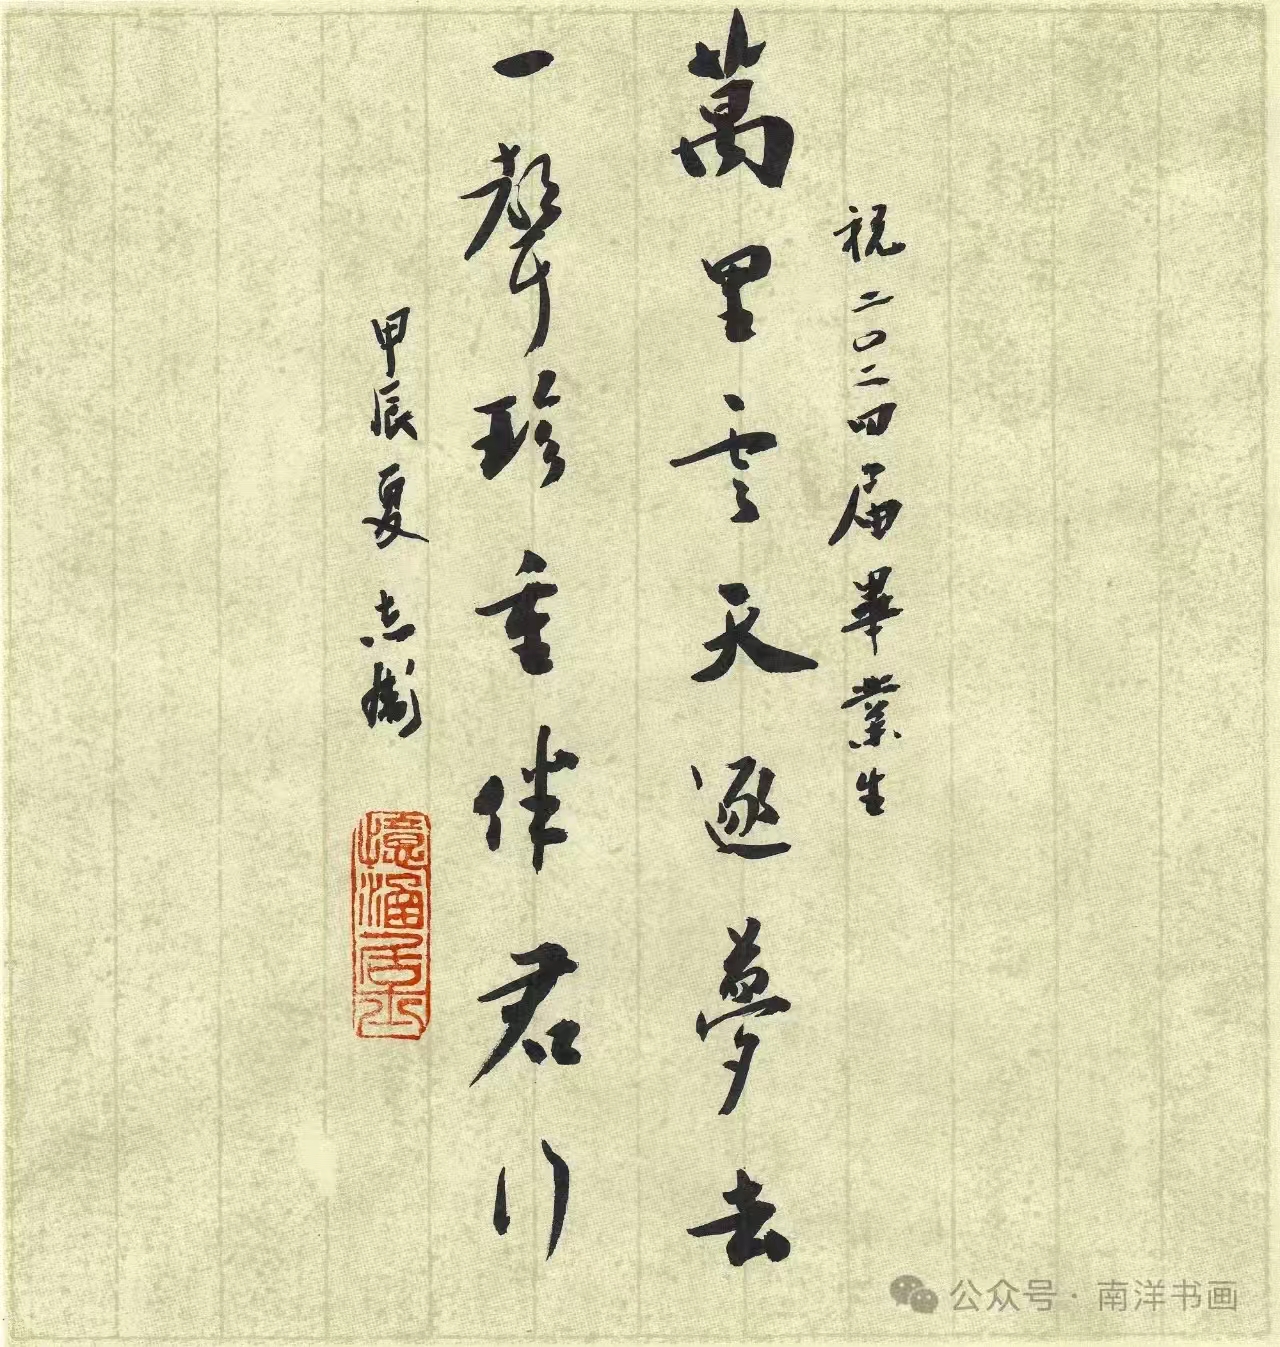 祝二〇二四届畢業生
萬里雲天逐夢去
一聲珍重伴君行
甲辰夏志
公众号·南洋书画